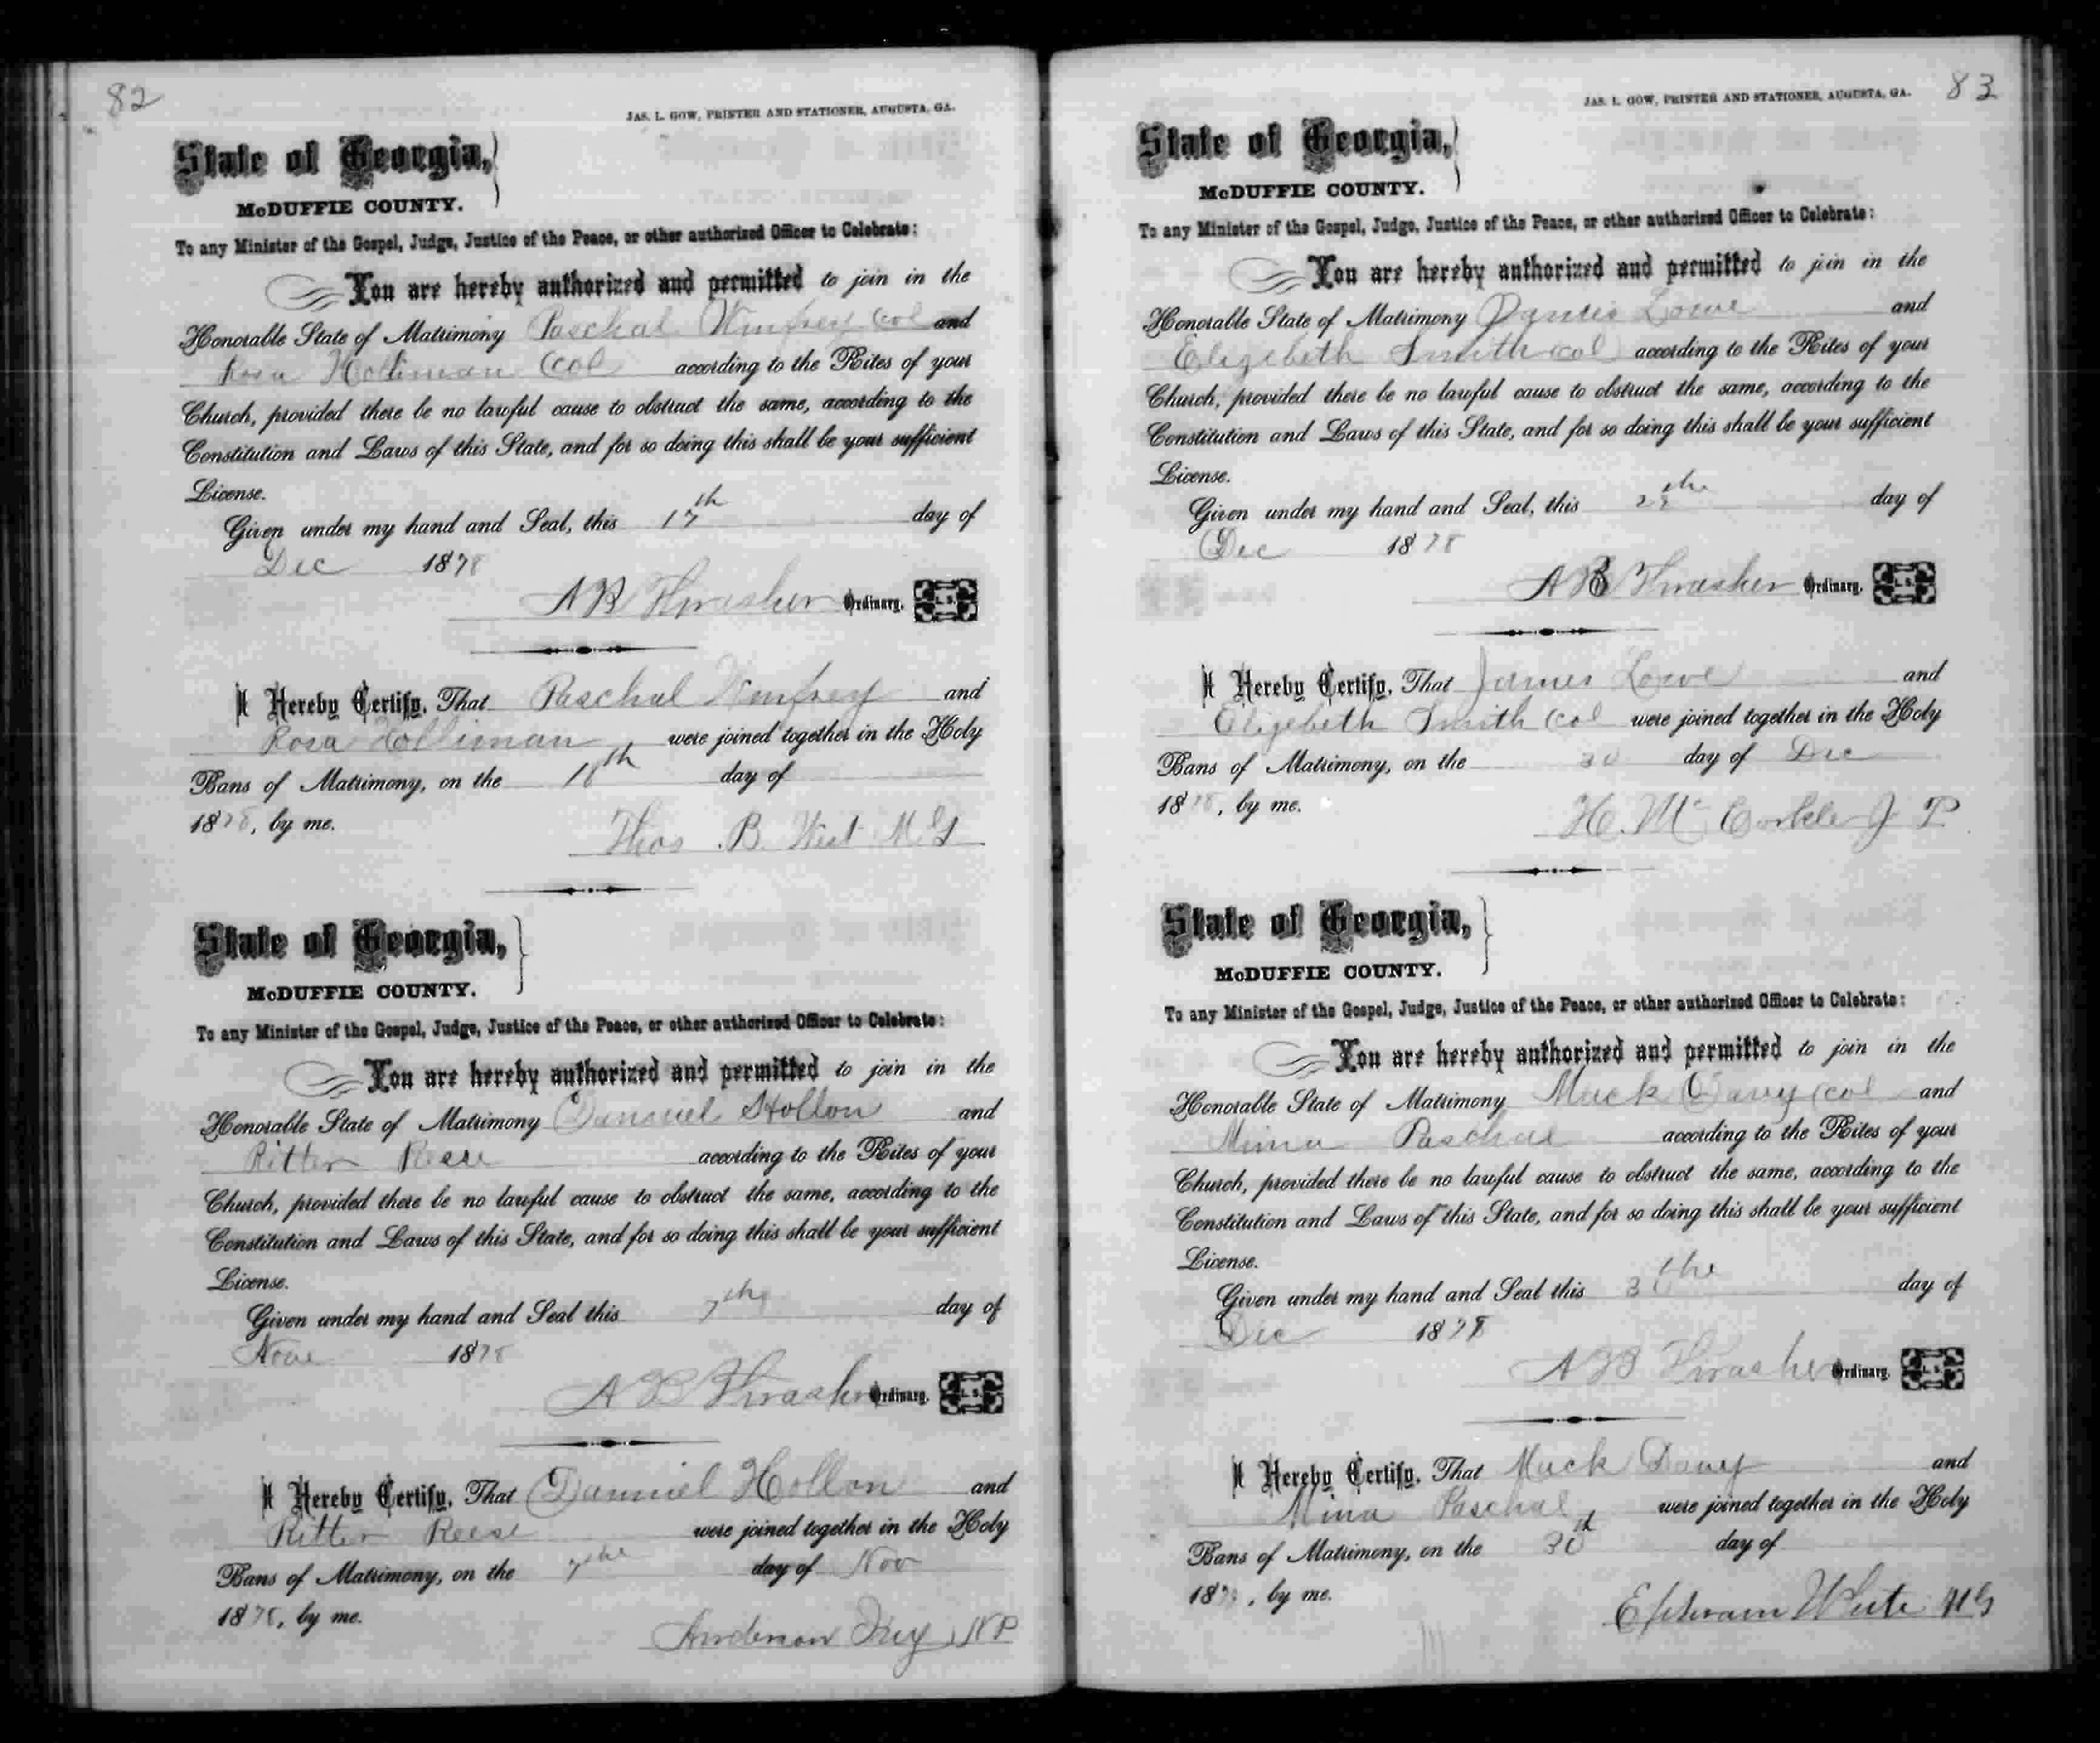 82
JAS. L. GOW, PRINTER AND STATIONER, AUGUSTA, GA.
State of Georgia,
McDUFFIE COUNTY.
To any Minister of the Gospel, Judge, Justice of the Peace, or other authorized Officer to Celebrate:
You are hereby authorized and permitted to join in the
Honorable State of Matrimony Paschal Winfrey Col and
Rosa Holliman Col according to the Rites of your
Church, provided there be no lawful cause to obstruct the same, according to the
Constitution and Laws of this State, and for so doing this shall be your sufficient
License.
Given under my hand and Seal, this 17th day of
Dec 1878
A B Thrasher Ordinary. L. S.
I Hereby Certify, That Paschal Winfrey and
Rosa Holliman were joined together in the Holy
Bans of Matrimony, on the 18th day of
1878, by me.
Thos. B. West M G
State of Georgia,
McDUFFIE COUNTY.
To any Minister of the Gospel, Judge, Justice of the Peace, or other authorized Officer to Celebrate:
You are hereby authorized and permitted to join in the
Honorable State of Matrimony Hollon and
Ritter Reese according to the Rites of your
Church, provided there be no lawful cause to obstruct the same, according to the
Constitution and Laws of this State, and for so doing this shall be your sufficient
License.
Given under my hand and Seal this 7th day of
1878
A B Thrasher Ordinary. L. S.
I Hereby Certify, That Hollon and
Ritter Reese were joined together in the Holy
Bans of Matrimony, on the 7th day of Nov
1878, by me.
Anderson Ivey NP
83
JAS. L. GOW, PRINTER AND STATIONER, AUGUSTA, GA.
State of Georgia,
McDUFFIE COUNTY.
To any Minister of the Gospel, Judge, Justice of the Peace, or other authorized Officer to Celebrate:
You are hereby authorized and permitted to join in the
Honorable State of Matrimony James Lowe and
Elizebeth Smith (col) according to the Rites of your
Church, provided there be no lawful cause to obstruct the same, according to the
Constitution and Laws of this State, and for so doing this shall be your sufficient
License.
Given under my hand and Seal, this 28th day of
Dec 1878
A B Thrasher Ordinary. L. S.
I Hereby Certify, That James Lowe and
Elizebeth Smith (col were joined together in the Holy
Bans of Matrimony, on the 30 day of Dec
1878, by me.
H. McCorkle J P
State of Georgia,
McDUFFIE COUNTY.
To any Minister of the Gospel, Judge, Justice of the Peace, or other authorized Officer to Celebrate:
You are hereby authorized and permitted to join in the
Honorable State of Matrimony Muck Davy (col and
Mina Paschal according to the Rites of your
Church, provided there be no lawful cause to obstruct the same, according to the
Constitution and Laws of this State, and for so doing this shall be your sufficient
License.
Given under my hand and Seal this 30th day of
Dec 1878
A B Thrasher Ordinary. L. S.
I Hereby Certify, That Muck Davy and
Mina Paschal were joined together in the Holy
Bans of Matrimony, on the 30th day of
1878, by me.
Ephram White MG